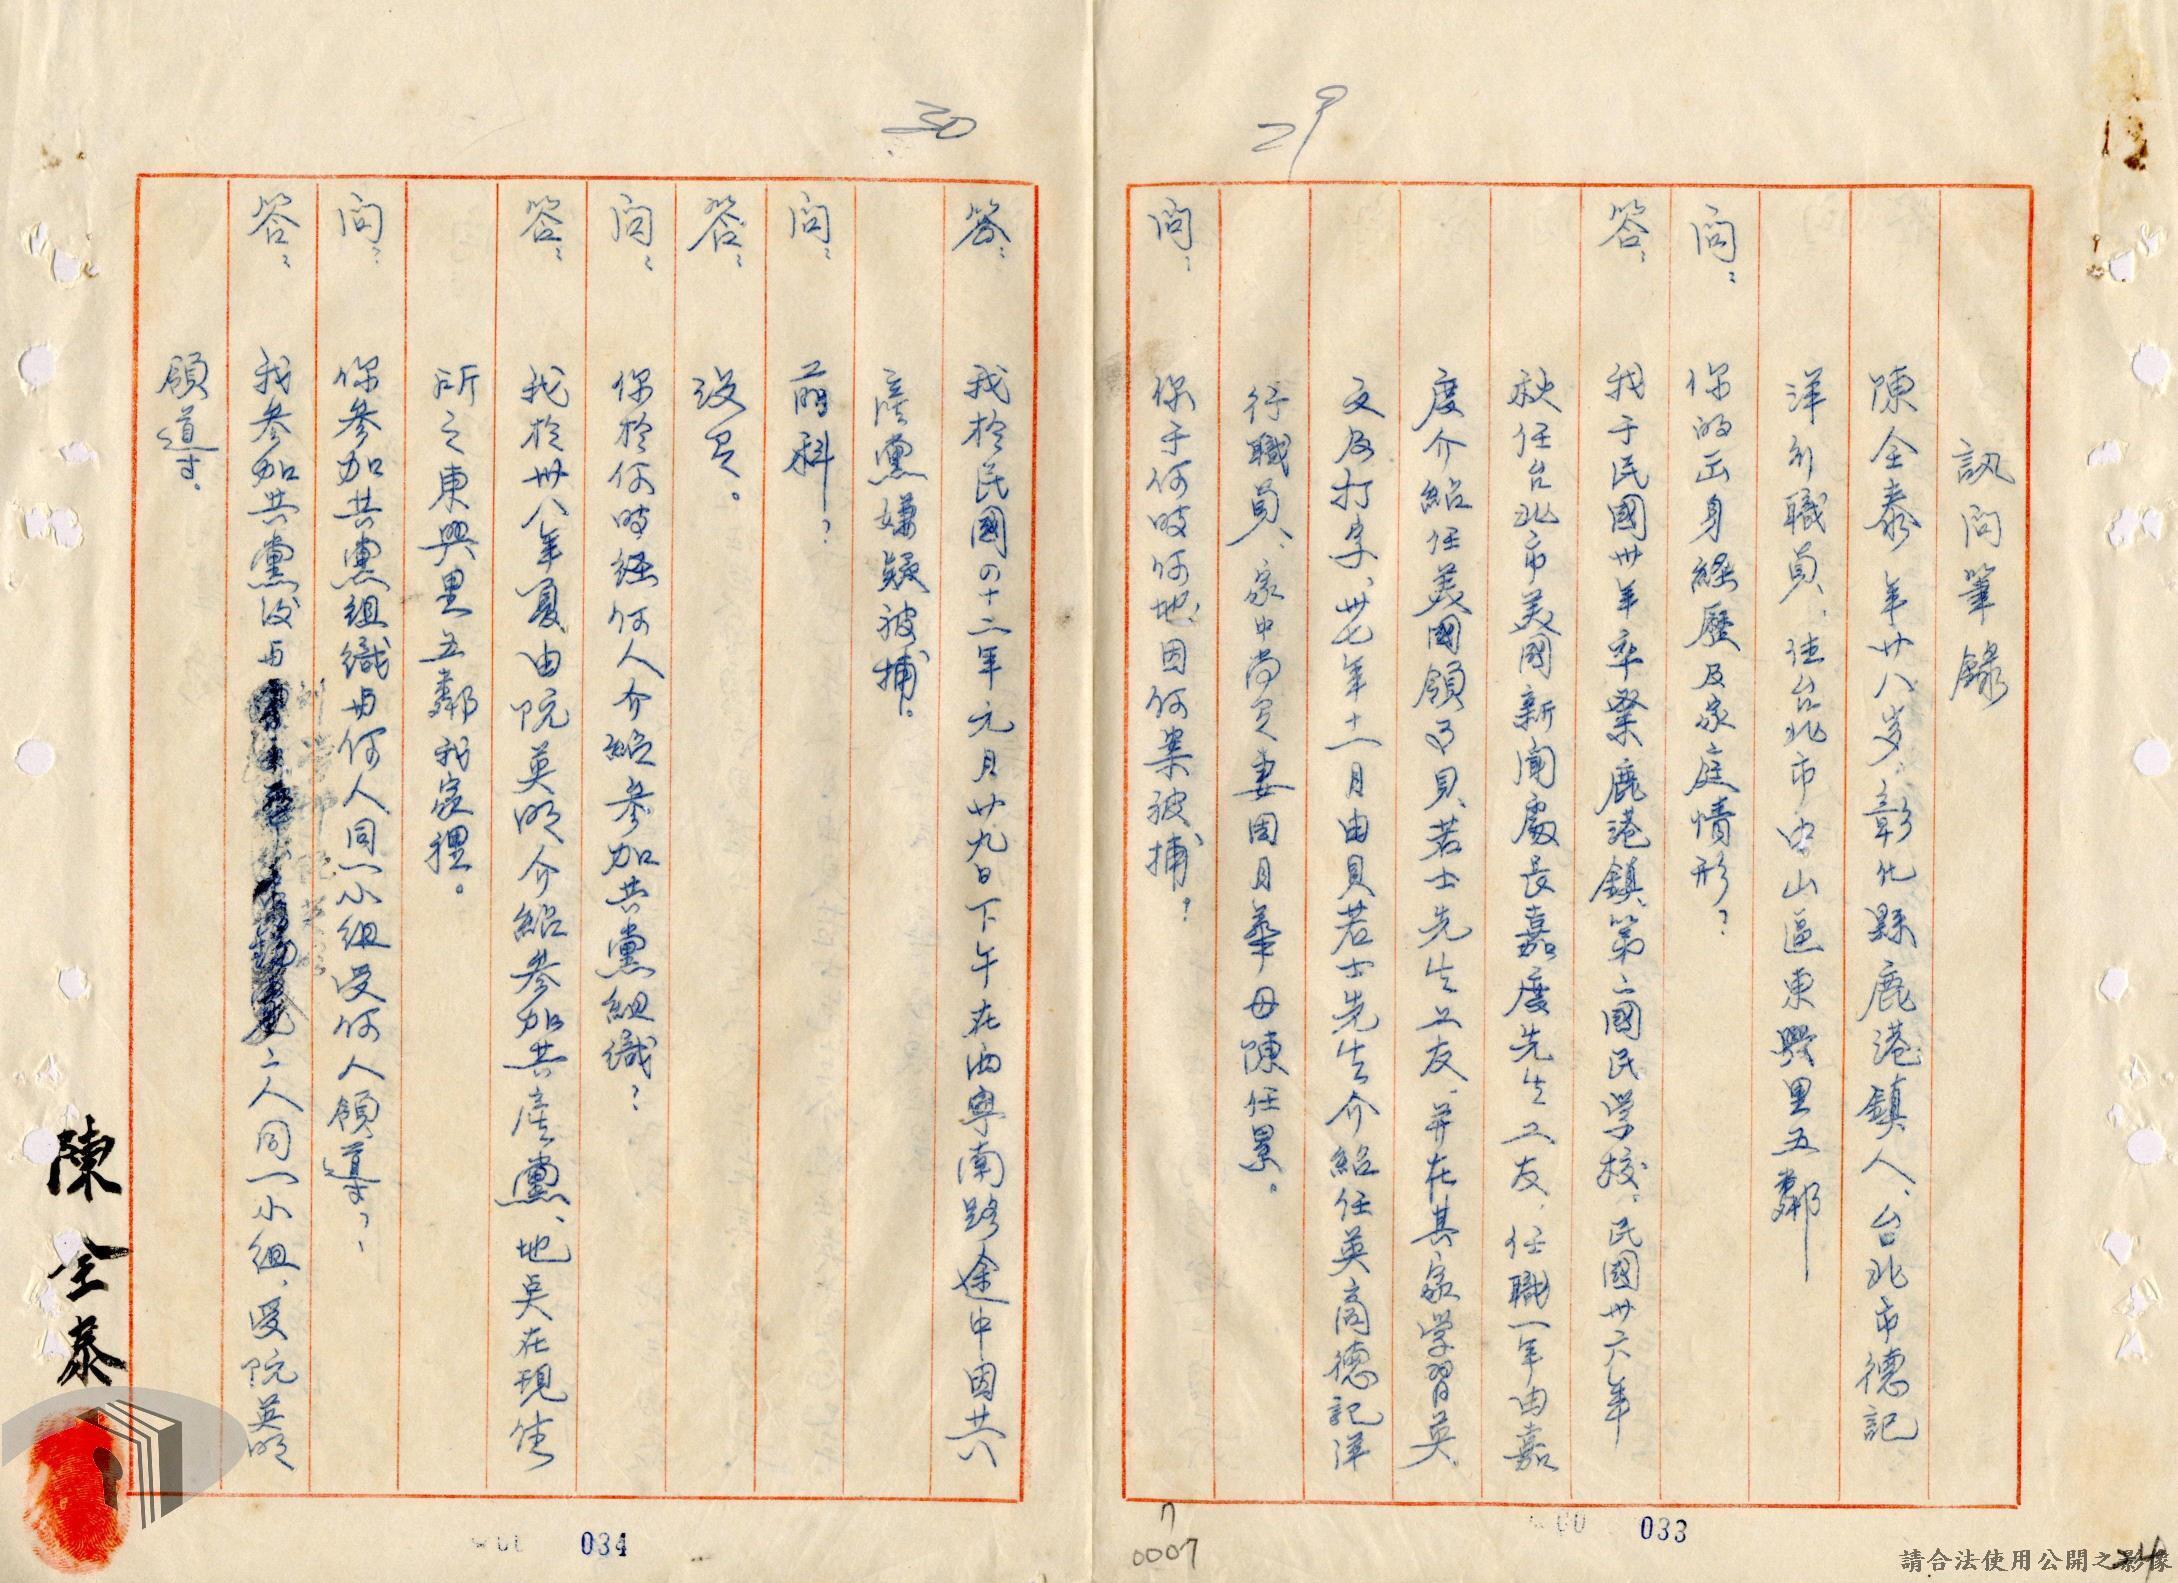 29
訊問筆錄
陳全泰 年廿八岁、彰化縣鹿港鎮人、台北市德記
洋行職員、住台北市中山區東興里五鄰
問: 你的出身經歷及家庭情形?
答: 我于民國卅年卒業鹿港鎮第二國民学校、民國卅六年
秋任台北市美國新聞處長嘉度先生工友、任職一年由嘉
度介紹任美國領事貝若士先生工友、并在其家学習英
文及打字、卅七年十一月由貝若士先生介紹任英商德記洋
行職員、家中尚有妻周月華母陳任景。
問: 你于何时何地因何案被捕?
7
0007
033
30
答: 我於民國四十二年元月廿九日下午在西寧南路途中因共
產黨嫌疑被捕。
問: 前科?
答: 没有。
問: 你於何时經何人介紹參加共黨組織?
答: 我於卅八年夏由阮英明介紹參加共產黨、地点在現住
所之東興里五鄰我家裡。
問: 你參加共黨組織与何人同一小組受何人領導?
答: 我參加共黨没与二人同一小組、受阮英明
領導。
陳全泰
034
請合法使用公開之影像